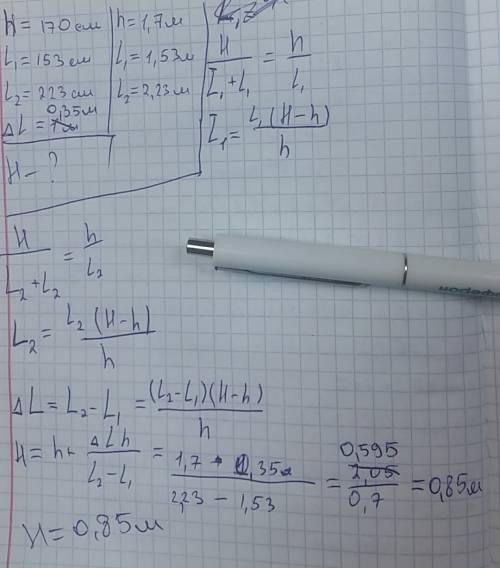 h = 170 см
L₁ = 153 см
L₂ = 223 см
0,35м
ΔL =
H – ?
h = 1,7м
L₁ = 1,53м
L₂ = 2,23м
H / (L₁ + L₁) = h / L₁
L₁ = L₁(H-h) / h
H / (L₂ + L₂) = h / L₂
L₂ = L₂(H-h) / h
ΔL = L₂ - L₁ = (L₂-L₁)(H-h) / h
H = h + ΔLh / (L₂-L₁) = 1,7 · 0,35 / (2,23 - 1,53) = 0,595 / 0,7 = 0,85м
H = 0,85м